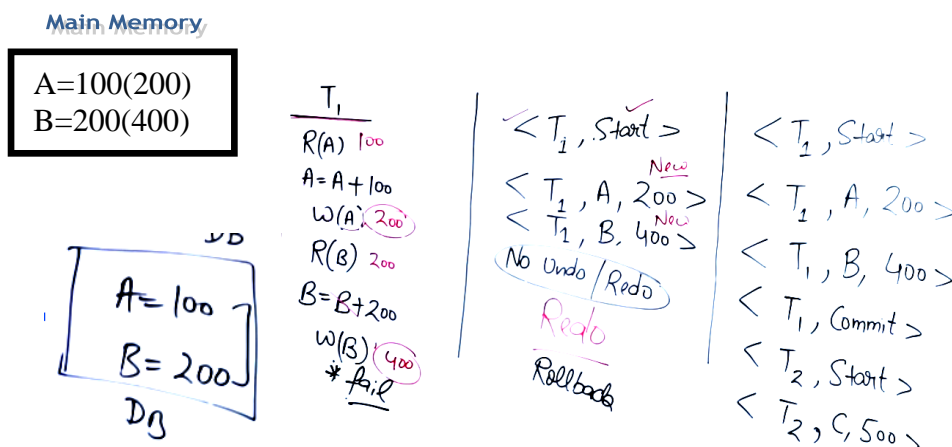 Main Memory
A=100(200)
B=200(400)
DB
A=100
B=200
DB
T1
R(A) 100
A=A+100
W(A) 200
R(B) 200
B=B+200
W(B) 400
* fail
<T1, Start>
New
<T1, A, 200>
New
<T1, B, 400>
No Undo/Redo
Redo
Rollback
<T1, Start>
<T1, A, 200>
<T1, B, 400>
<T1, Commit>
<T2, Start>
<T2, C, 500>